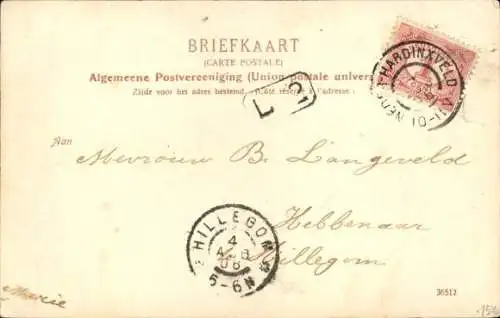 BRIEFKAART
(CARTE POSTALE)
Algemeene Postvereeniging (Union postale univers
Zijde voor het adres bestemd. Côté réservé à l'adresse
HARDINXVELD
Aan
Mevrouw B. Langeveld
Hebbenaar
Hillegom
HILLEGOM
4
AUG
06
5-6N
Marie
36512